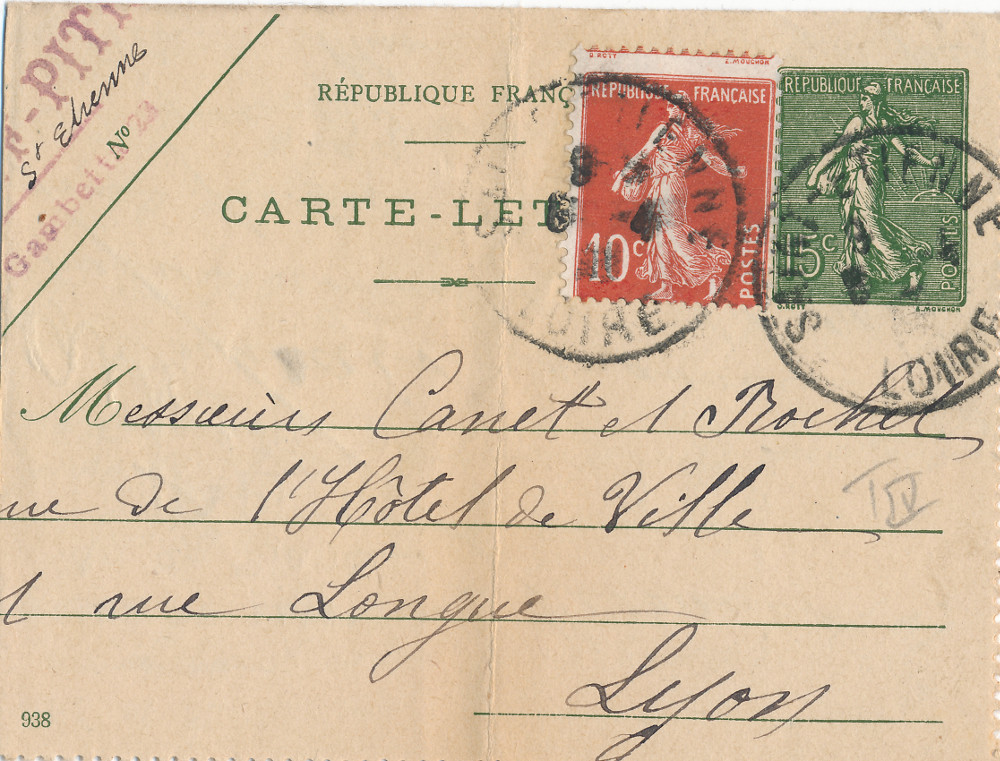 PITI
St Etienne
Gambetta 23
No
RÉPUBLIQUE FRANÇ
CARTE-LET
O. ROTY E. MOUCHON
RÉPUBLIQUE FRANÇAISE
10c
POSTES
RÉPUBLIQUE FRANÇAISE
15c
POSTES
O. ROTY E. MOUCHON
LOIRE
LOIRE
Messieurs Canet et Rochet
ue de l'Hôtel de Ville
1 rue Longue
Lyon
938